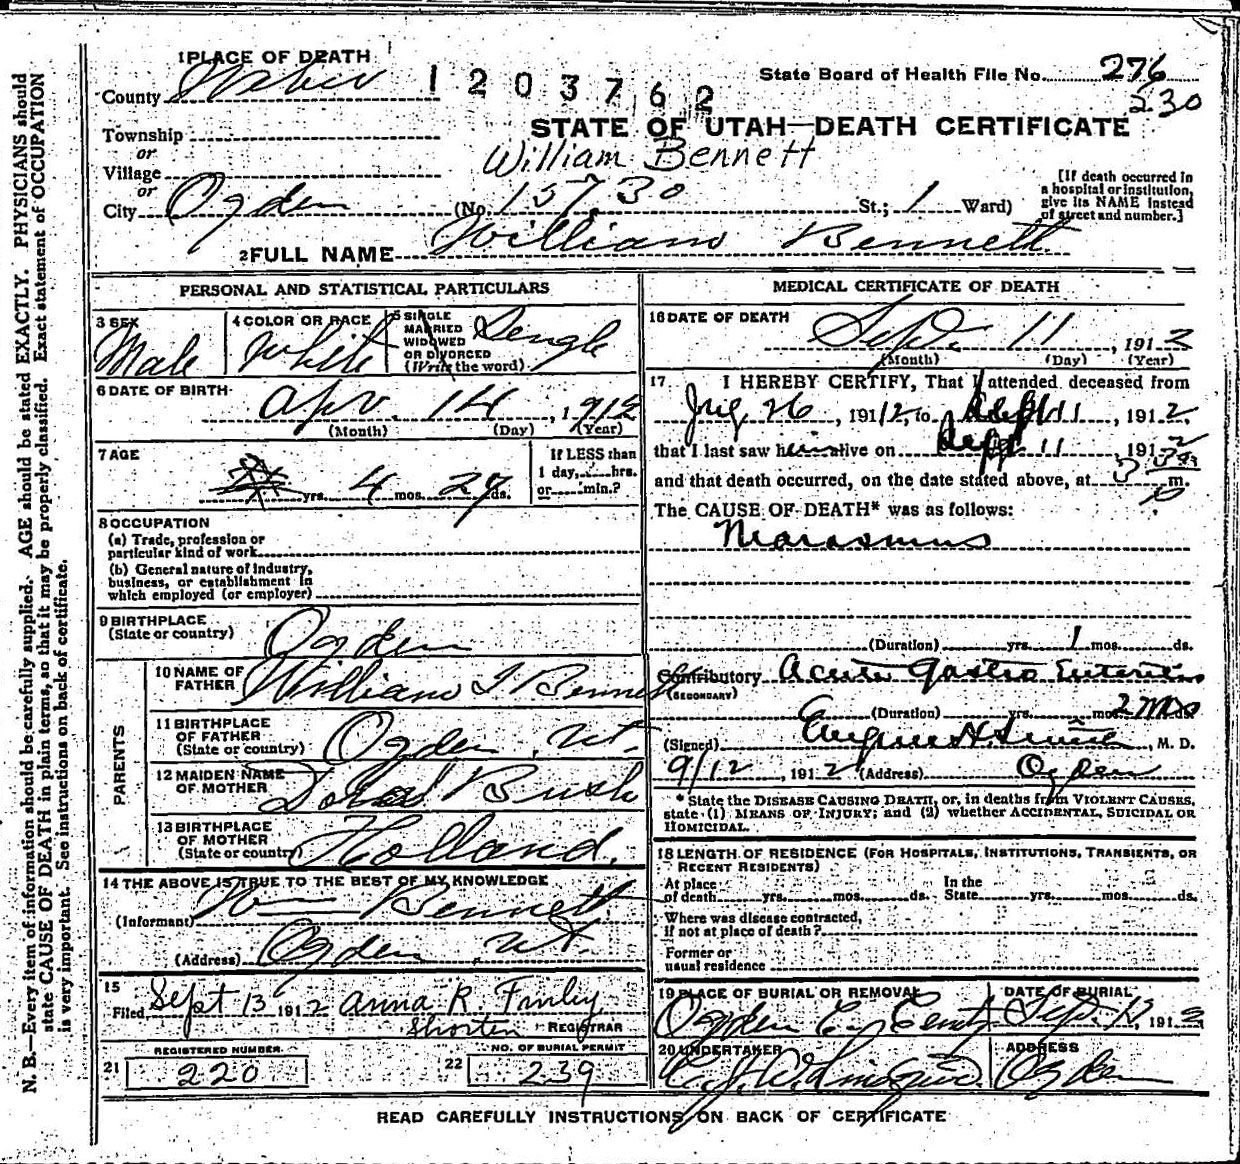 1 PLACE OF DEATH
County Weber
1203762
State Board of Health File No. 276
230
Township
or
Village
or
STATE OF UTAH—DEATH CERTIFICATE
William Bennett
City Ogden (No. 157 30 St.; 1 Ward)
[If death occurred in
a hospital or institution,
give its NAME instead
of street and number.]
2 FULL NAME William Bennett
PERSONAL AND STATISTICAL PARTICULARS
3 SEX
Male
4 COLOR OR RACE
White
5 SINGLE
MARRIED
WIDOWED
OR DIVORCED
(Write the word)
Single
6 DATE OF BIRTH
Apr. 14, 1912
(Month) (Day) (Year)
7 AGE
yrs. 4 mos. 27 ds.
If LESS than
1 day, hrs.
or min.?
8 OCCUPATION
(a) Trade, profession or
particular kind of work
(b) General nature of industry,
business, or establishment in
which employed (or employer)
9 BIRTHPLACE
(State or country) Ogden
PARENTS
10 NAME OF
FATHER William J Bennett
11 BIRTHPLACE
OF FATHER
(State or country) Ogden, Ut
12 MAIDEN NAME
OF MOTHER Bush
13 BIRTHPLACE
OF MOTHER
(State or country) Holland.
14 THE ABOVE IS TRUE TO THE BEST OF MY KNOWLEDGE
(Informant) Wm Bennett
(Address) Ogden, Ut.
15
Filed Sept 13 1912 Anna R Finley
Shorten REGISTRAR
REGISTERED NUMBER
21 220
NO. OF BURIAL PERMIT
22 239
MEDICAL CERTIFICATE OF DEATH
16 DATE OF DEATH
Sept. 11, 1912
(Month) (Day) (Year)
17 I HEREBY CERTIFY, That I attended deceased from
26, 1912, to Sept 11, 1912,
that I last saw him alive on Sept 11 1912
and that death occurred, on the date stated above, at 3 m.
P
The CAUSE OF DEATH* was as follows:
Marasmus
(Duration) yrs. 1 mos. ds.
Contributory Acute Gastro Enteritis
(SECONDARY)
(Duration) yrs. mos. 2 ds.
(Signed) Eugene H. M. D.
9/12, 1912 (Address) Ogden
* State the DISEASE CAUSING DEATH, or, in deaths from VIOLENT CAUSES,
state (1) MEANS OF INJURY; and (2) whether ACCIDENTAL, SUICIDAL OR
HOMICIDAL.
18 LENGTH OF RESIDENCE (FOR HOSPITALS, INSTITUTIONS, TRANSIENTS, OR
RECENT RESIDENTS)
At place
of death yrs. mos. ds.
In the
State yrs. mos. ds.
Where was disease contracted,
if not at place of death?
Former or
usual residence
19 PLACE OF BURIAL OR REMOVAL
Ogden Cy Cemty
DATE OF BURIAL
Sept. 12, 1912
20 UNDERTAKER
ADDRESS
Ogden
READ CAREFULLY INSTRUCTIONS ON BACK OF CERTIFICATE
N. B.—Every item of information should be carefully supplied. AGE should be stated EXACTLY. PHYSICIANS should
state CAUSE OF DEATH in plain terms, so that it may be properly classified. Exact statement of OCCUPATION
is very important. See instructions on back of certificate.